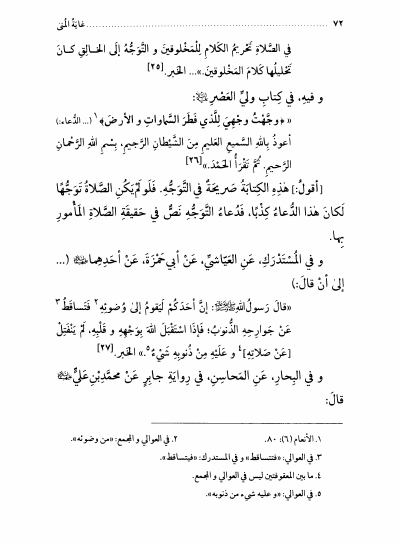 ٧٢ ........ غايَةُ المُنى
في الصَّلاةِ تَحْرِيمُ الكَلامِ لِلْمَخْلوقينَ وَ التَّوَجُّهُ إلَى الخَالِقِ كانَ
تَحْليلُها كَلامَ المَخْلوقينَ.»... الخبر.[٢٥]
و فيهِ، في كِتابِ وَليِّ العَصْرِ:
« ﴿وَجَّهْتُ وَجْهِيَ لِلَّذي فَطَرَ السَّماواتِ وَ الأرضَ﴾١ (... الدُّعاء:)
أعوذُ بِاللهِ السَّميعِ العَليمِ مِنَ الشَّيْطانِ الرَّجيمِ، بِسْمِ اللهِ الرَّحْمانِ
الرَّحيمِ. ثُمَّ تَقْرَأُ الحَمْدَ.»[٢٦]
[أقولُ:] هَذِهِ الكِتابَةُ صَريحَةٌ في التَّوَجُّهِ. فَلَو لَمْ يَكُنِ الصَّلاةُ تَوَجُّهًا
لَكانَ هَذا الدُّعاءُ كِذْبًا، فَدُعاءُ التَّوَجُّهِ نَصٌّ في حَقيقَةِ الصَّلاةِ المَأْمورِ
بِها.
و في المُسْتَدْرَكِ، عَنِ العَيّاشيِّ، عَنْ أبي حَمْزَةَ، عَنْ أحَدِهِما (...
إلى أنْ قالَ:)
«قالَ رَسولُ اللهِ: إنَّ أحَدَكُمْ لَيَقومُ إلى وُضوئِهِ٢ فَتَساقَطُ٣
عَنْ جَوارِحِهِ الذُّنوبُ؛ فَإذا اسْتَقْبَلَ اللهَ بِوَجْهِهِ وَ قَلْبِهِ، لَمْ يَنْفَتِلْ
[عَنْ صَلاتِهِ]٤ وَ عَلَيْهِ مِنْ ذُنوبِهِ شَيْءٌ٥.» الخبر.[٢٧]
و في البِحارِ، عَنِ المَحاسِنِ، في رِوايَةِ جابِرٍ عَنْ محمّدِ بْنِ عَليٍّ
قالَ:
١. الأنعام (٦): ٨٠. ٢. في العوالي و المجمع: «من وضوئه».
٣. في العوالي: «فتتساقط» و في المستدرك: «فيتساقط».
٤. ما بين المعقوفتين ليس في العوالي و المجمع.
٥. في العوالي: «و عليه شيء من ذنوبه».